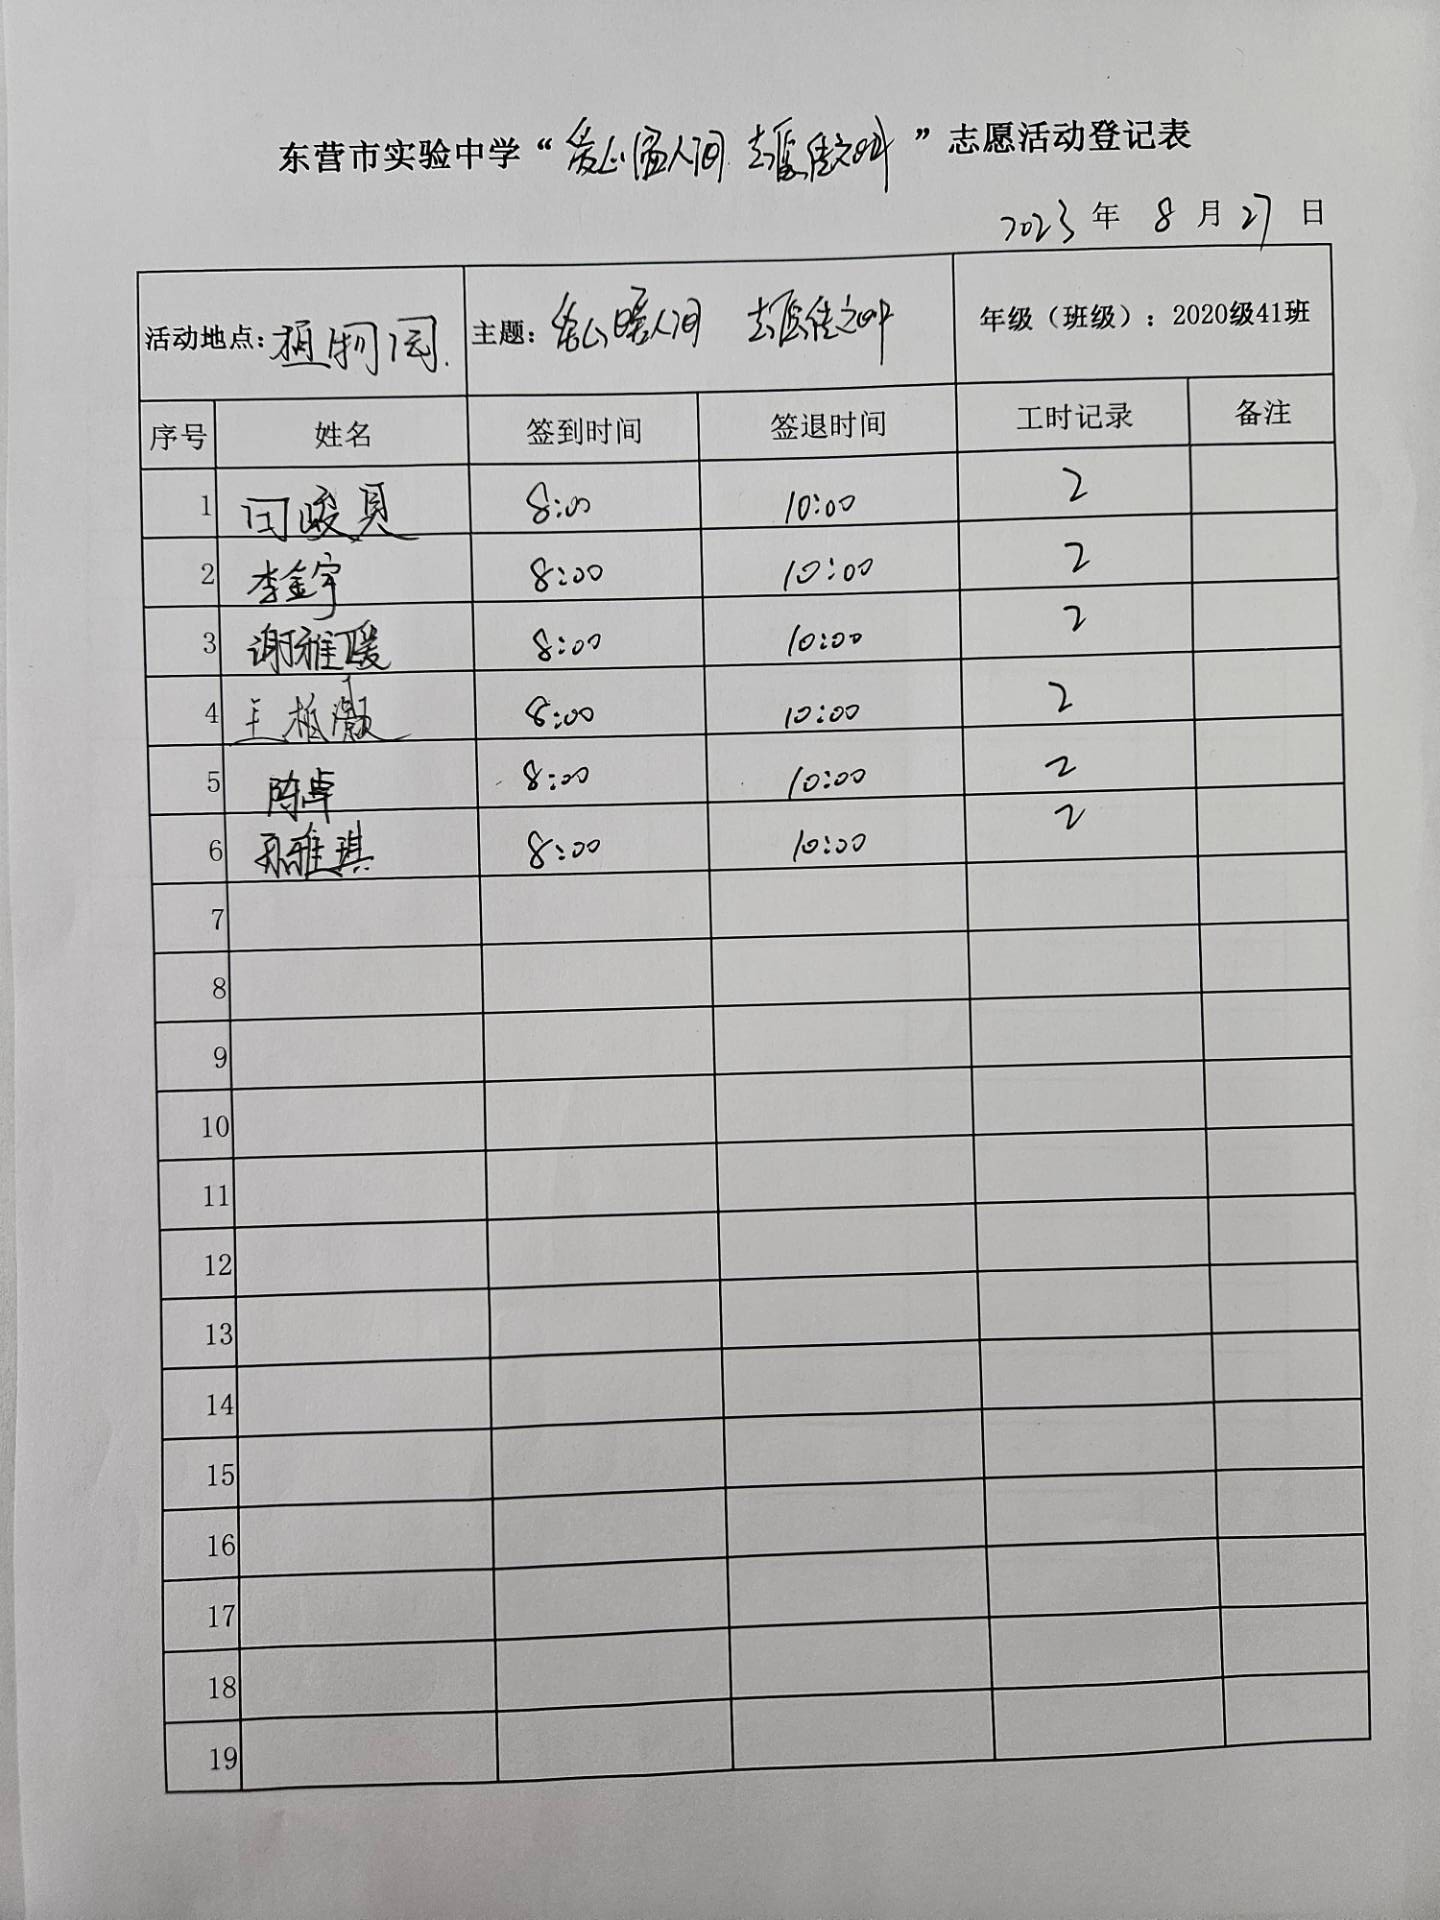 东营市实验中学“爱心温人间 志愿传文明”志愿活动登记表
2023年 8月27日
活动地点:植物园. 主题: 爱心暖人间 志愿传文明 年级（班级）: 2020级41班
序号 姓名 签到时间 签退时间 工时记录 备注
1 8:00 10:00 2
2 李金宇 8:00 10:00 2
3 谢雅瑗 8:00 10:00 2
4 王柏灏 8:00 10:00 2
5 陈卓 8:00 10:00 2
6 雅琪 8:00 10:00 2
7
8
9
10
11
12
13
14
15
16
17
18
19